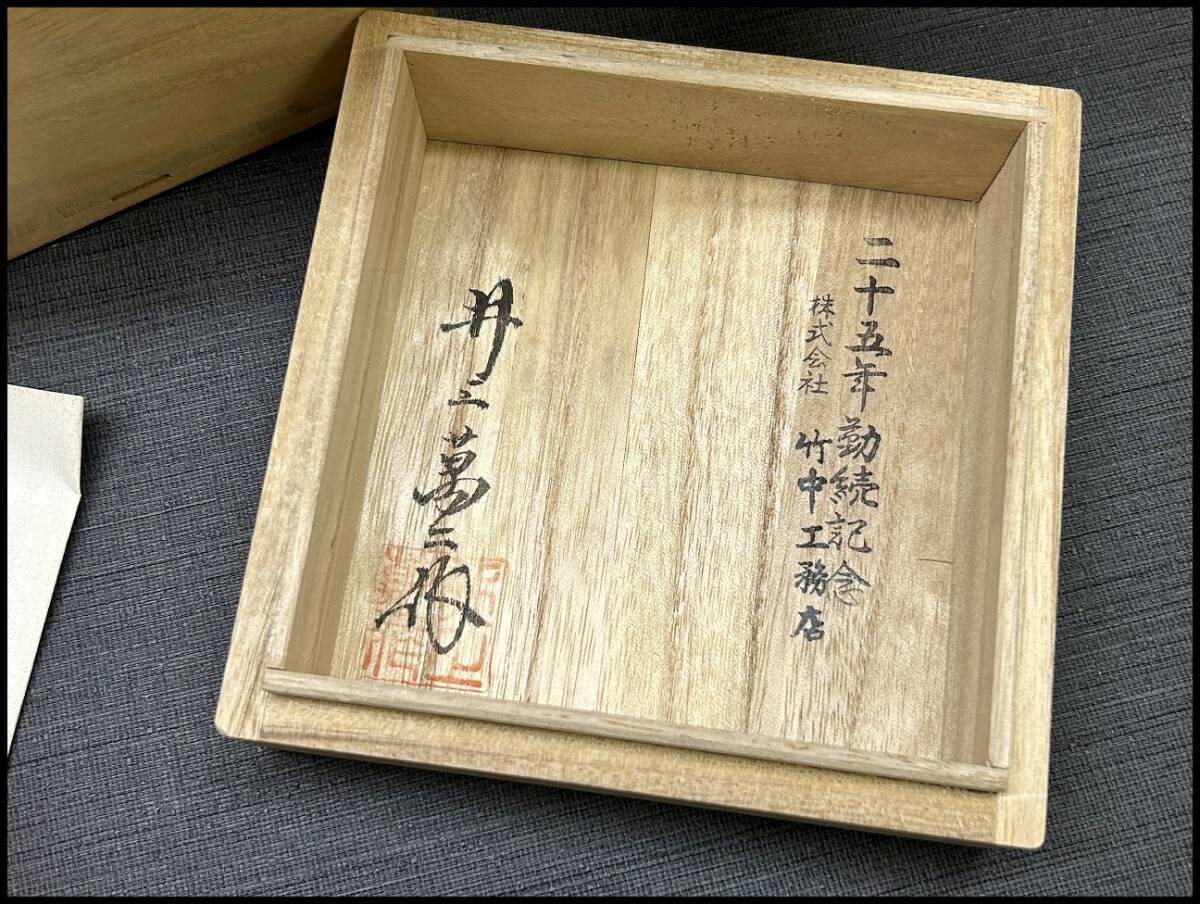 二十五年勤続記念
株式会社 竹中工務店
井上萬二作